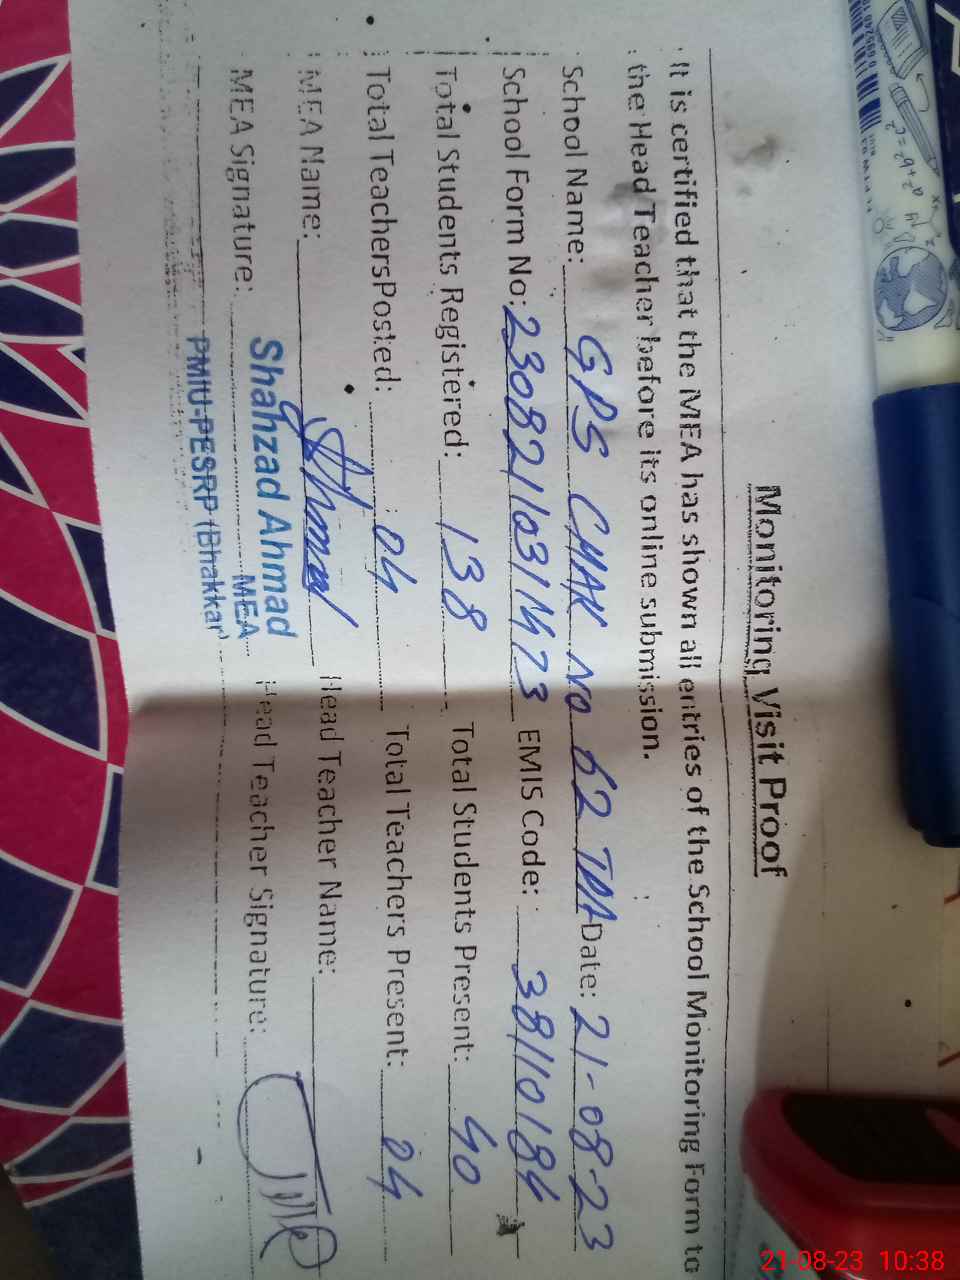 Monitoring Visit Proof
It is certified that the MEA has shown all entries of the School Monitoring Form to
the Head Teacher before its online submission.
School Name: GPS CHAK NO 62 TDA Date: 21-08-23
School Form No: 230821103114 73 EMIS Code: 38110184
Total Students Registered: 138 Total Students Present: 40
Total TeachersPosted: 04 Total Teachers Present: 04
MEA Name: Head Teacher Name:
MEA Signature: Head Teacher Signature:
Shahzad Ahmad
MEA
PMIU-PESRP (Bhakkar)
21-08-23 10:38